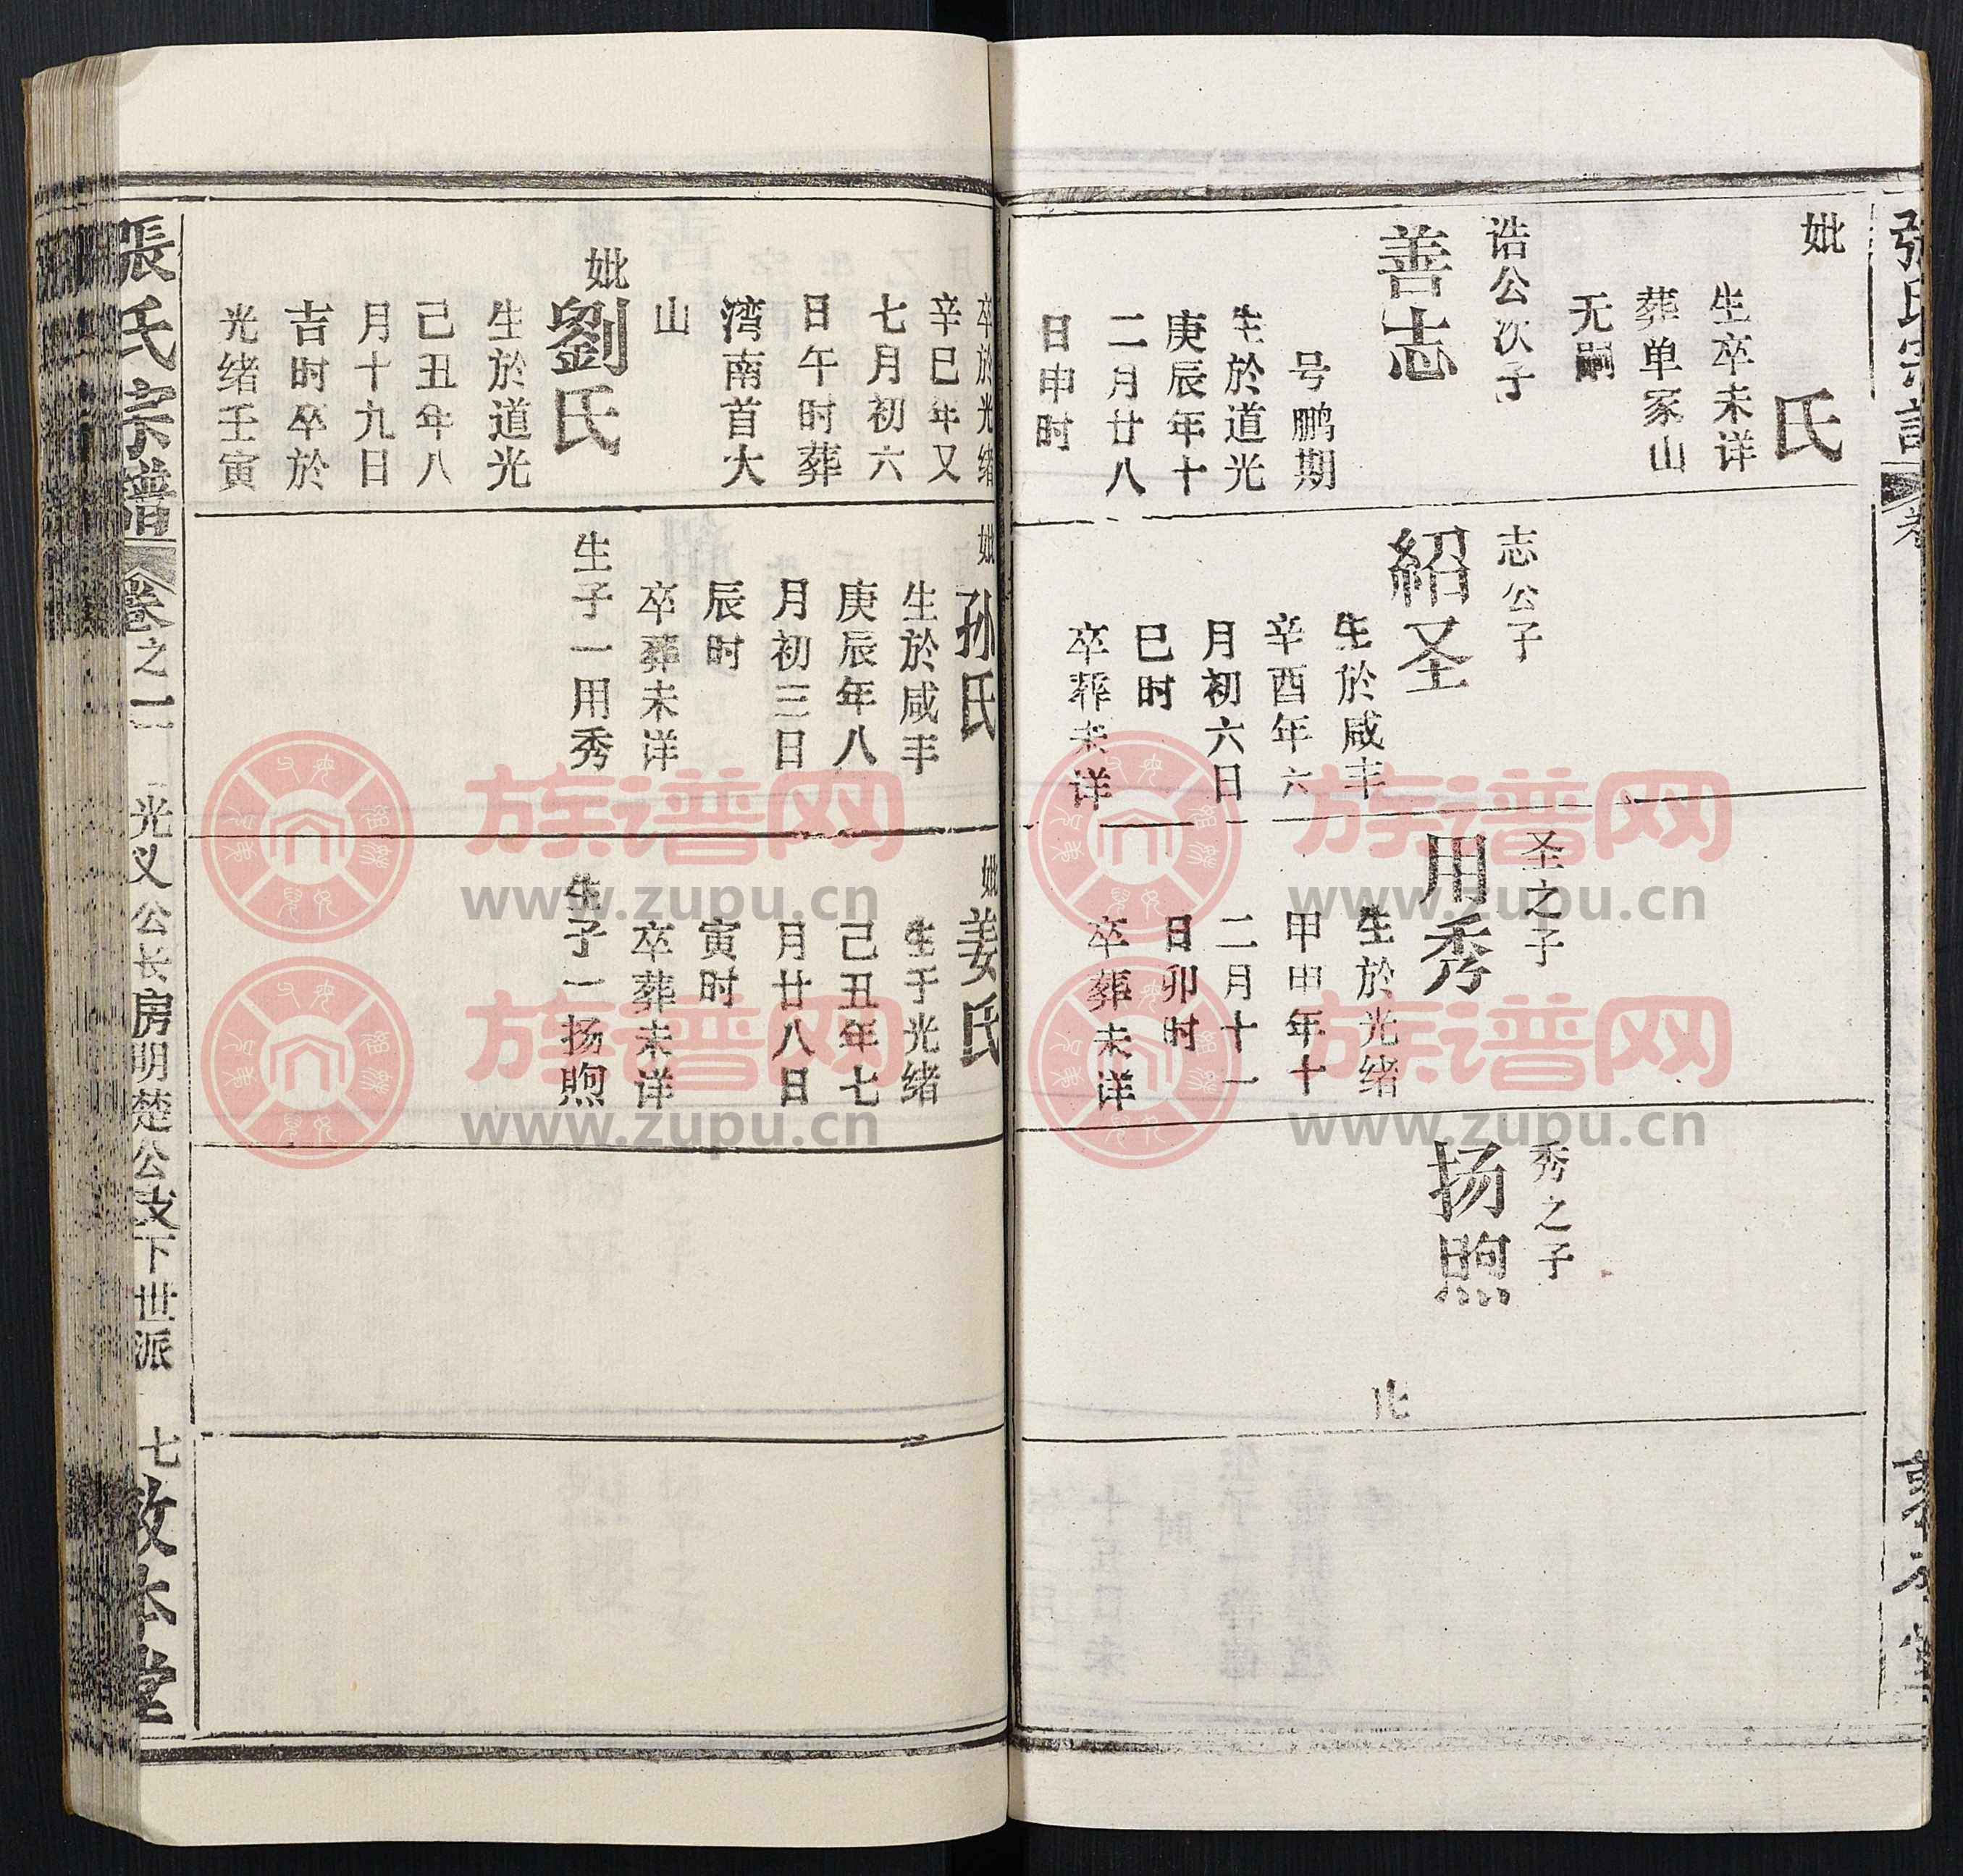 張氏宗譜
妣 氏
生卒未详
葬单家山
无嗣
诰公次子
善志
号鹏期
生於道光
庚辰年十
二月廿八
日申时
志公子
紹圣
生於咸丰
辛酉年六
月初六日
巳时
卒葬未详
圣之子
用秀
生於光绪
甲申年十
二月十一
日卯时
卒葬未详
秀之子
扬煦
止
卒於光绪
辛巳年又
七月初六
日午时葬
湾南首大
山
妣劉氏
生於道光
己丑年八
月十九日
吉时卒於
光绪壬寅
妣孙氏
生於咸丰
庚辰年八
月初三日
辰时
卒葬未详
生子一用秀
妣姜氏
生于光绪
己丑年七
月廿八日
寅时
卒葬未详
生子一扬煦
張氏宗譜 卷之二 光义公长房明楚公支下世派 七 敦本堂
族谱网
www.zupu.cn
族谱网
www.zupu.cn
族谱网
www.zupu.cn
族谱网
www.zupu.cn